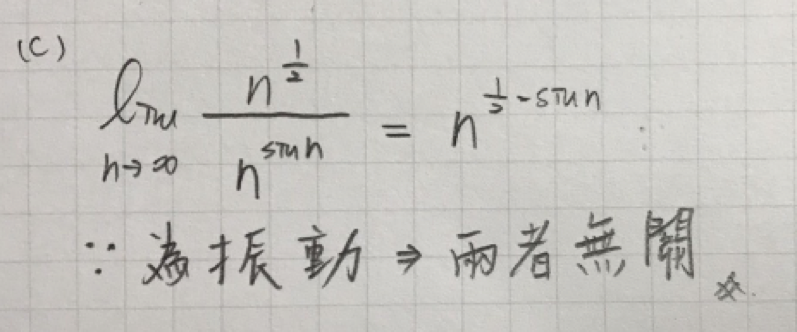 (C)
lim n→∞ n^{1/2} / n^{sin n} = n^{1/2 - sin n}
∵ 為振動 ⇒ 兩者無關